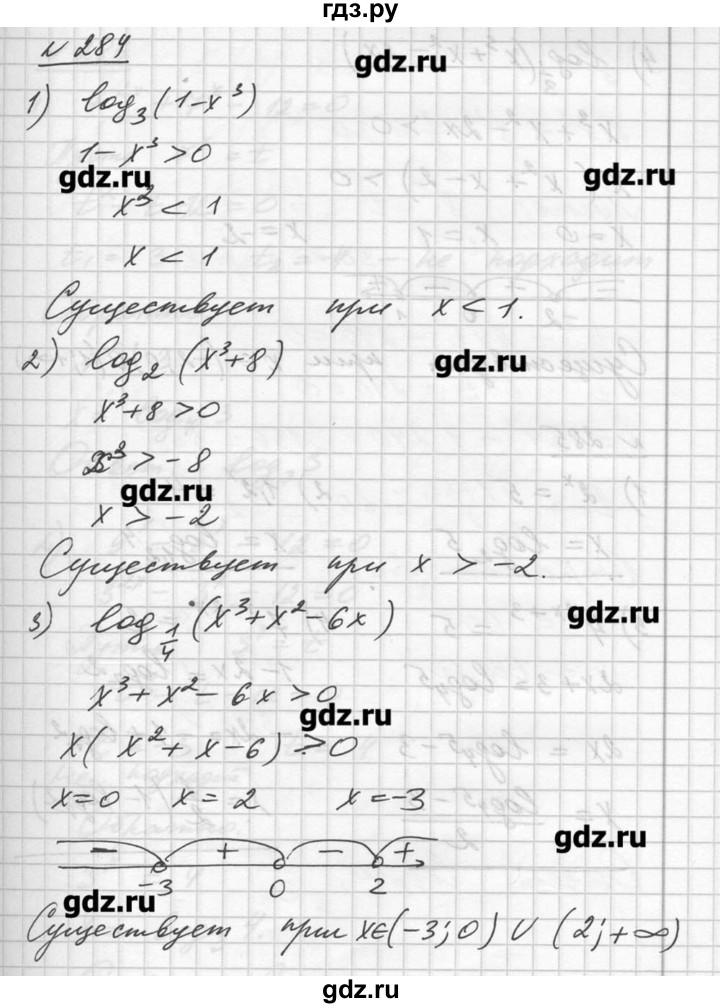 гдз.ру
№ 284
gdz.ru
1) log₃(1-x³)
1-x³>0
gdz.ru
gdz.ru
x³ < 1
x < 1
Существует при x < 1.
2) log₂(x³+8)
gdz.ru
x³+8>0
x³ > -8
gdz.ru
x > -2
Существует при x > -2.
3) log_{1/4}(x³+x²-6x)
gdz.ru
x³+x²-6x>0
gdz.ru
x(x²+x-6)>0
x=0 x=2 x=-3
gdz.ru
- + - +
-3 0 2
gdz.ru
Существует при x∈(-3;0)∪(2;+∞)
gdz.ru